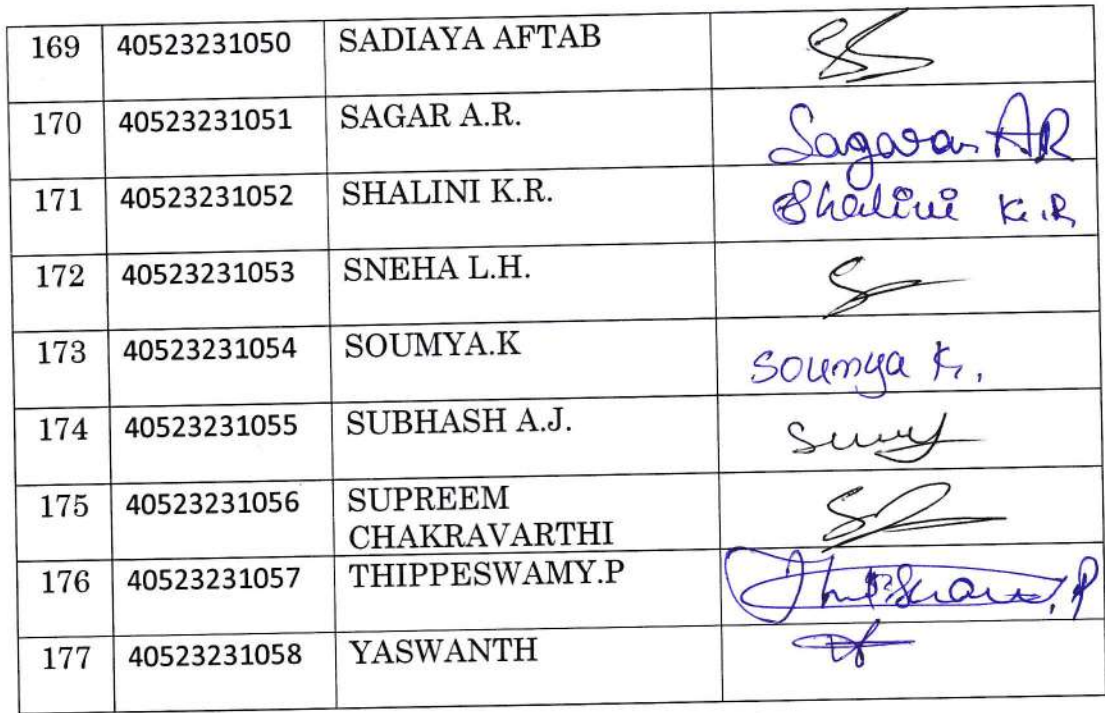 169 40523231050 SADIAYA AFTAB
170 40523231051 SAGAR A.R. Sagar A.R
171 40523231052 SHALINI K.R. Shalini K.R
172 40523231053 SNEHA L.H.
173 40523231054 SOUMYA.K Soumya K.
174 40523231055 SUBHASH A.J.
175 40523231056 SUPREEM
CHAKRAVARTHI
176 40523231057 THIPPESWAMY.P
177 40523231058 YASWANTH